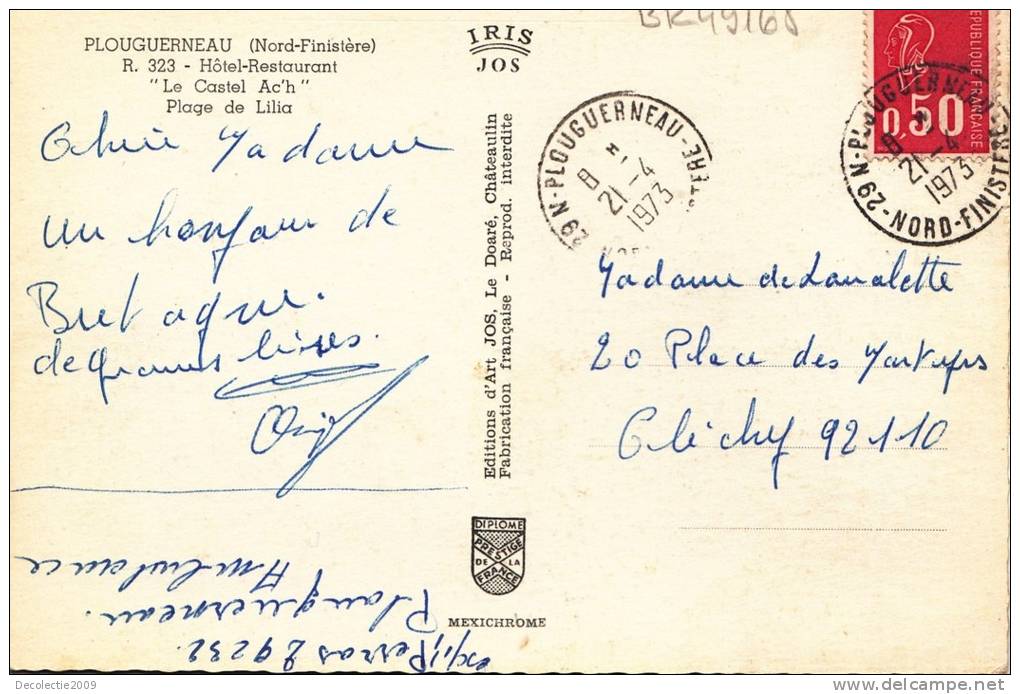 BK49168
PLOUGUERNEAU (Nord-Finistère)
R. 323 - Hôtel-Restaurant
"Le Castel Ac'h"
Plage de Lilia
IRIS
JOS
Chère Madame
un bonjour de
Bretagne.
de Grannus bises.
Editions d'Art JOS, Le Doaré, Châteaulin
Fabrication française - Reprod. interdite
29 N-PLOUGUERNEAU-
8 H
21-4
1973
REPUBLIQUE FRANÇAISE
0,50
29 N-PLOUGUERNEAU
NORD-FINISTERE
8 H
21-4
1973
Madame de Lavalette
20 Place des Martyrs
Clichy 92110
DIPLOME
PRESTIGE
DE LA
FRANCE
MEXICHROME
exp. Perros 29232
Plouguerneau.
Ambulance
Decolectie2009
delcampe.net